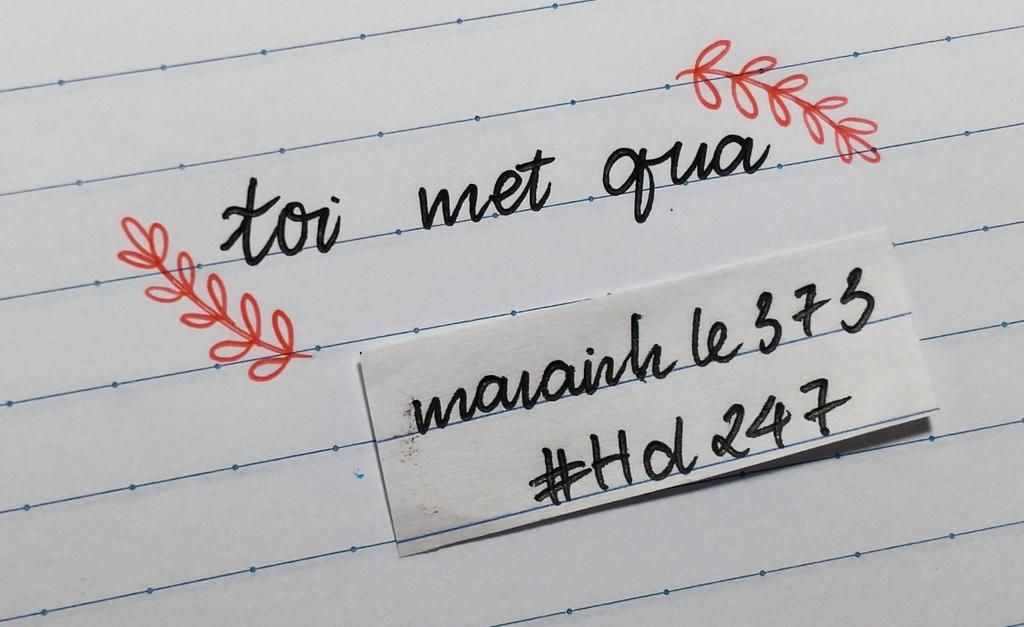 toi met qua
maiainh le 373
#Hd 247